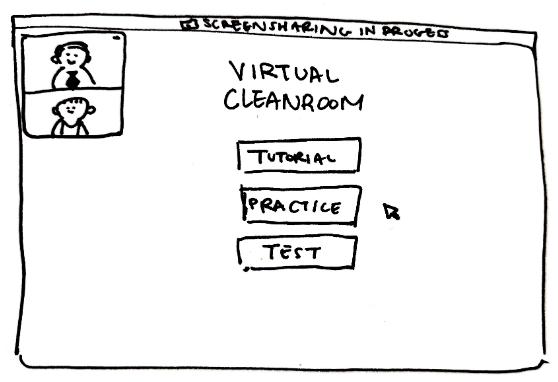 SCREENSHARING IN PROGESS
VIRTUAL
CLEANROOM
TUTORIAL
PRACTICE
TEST